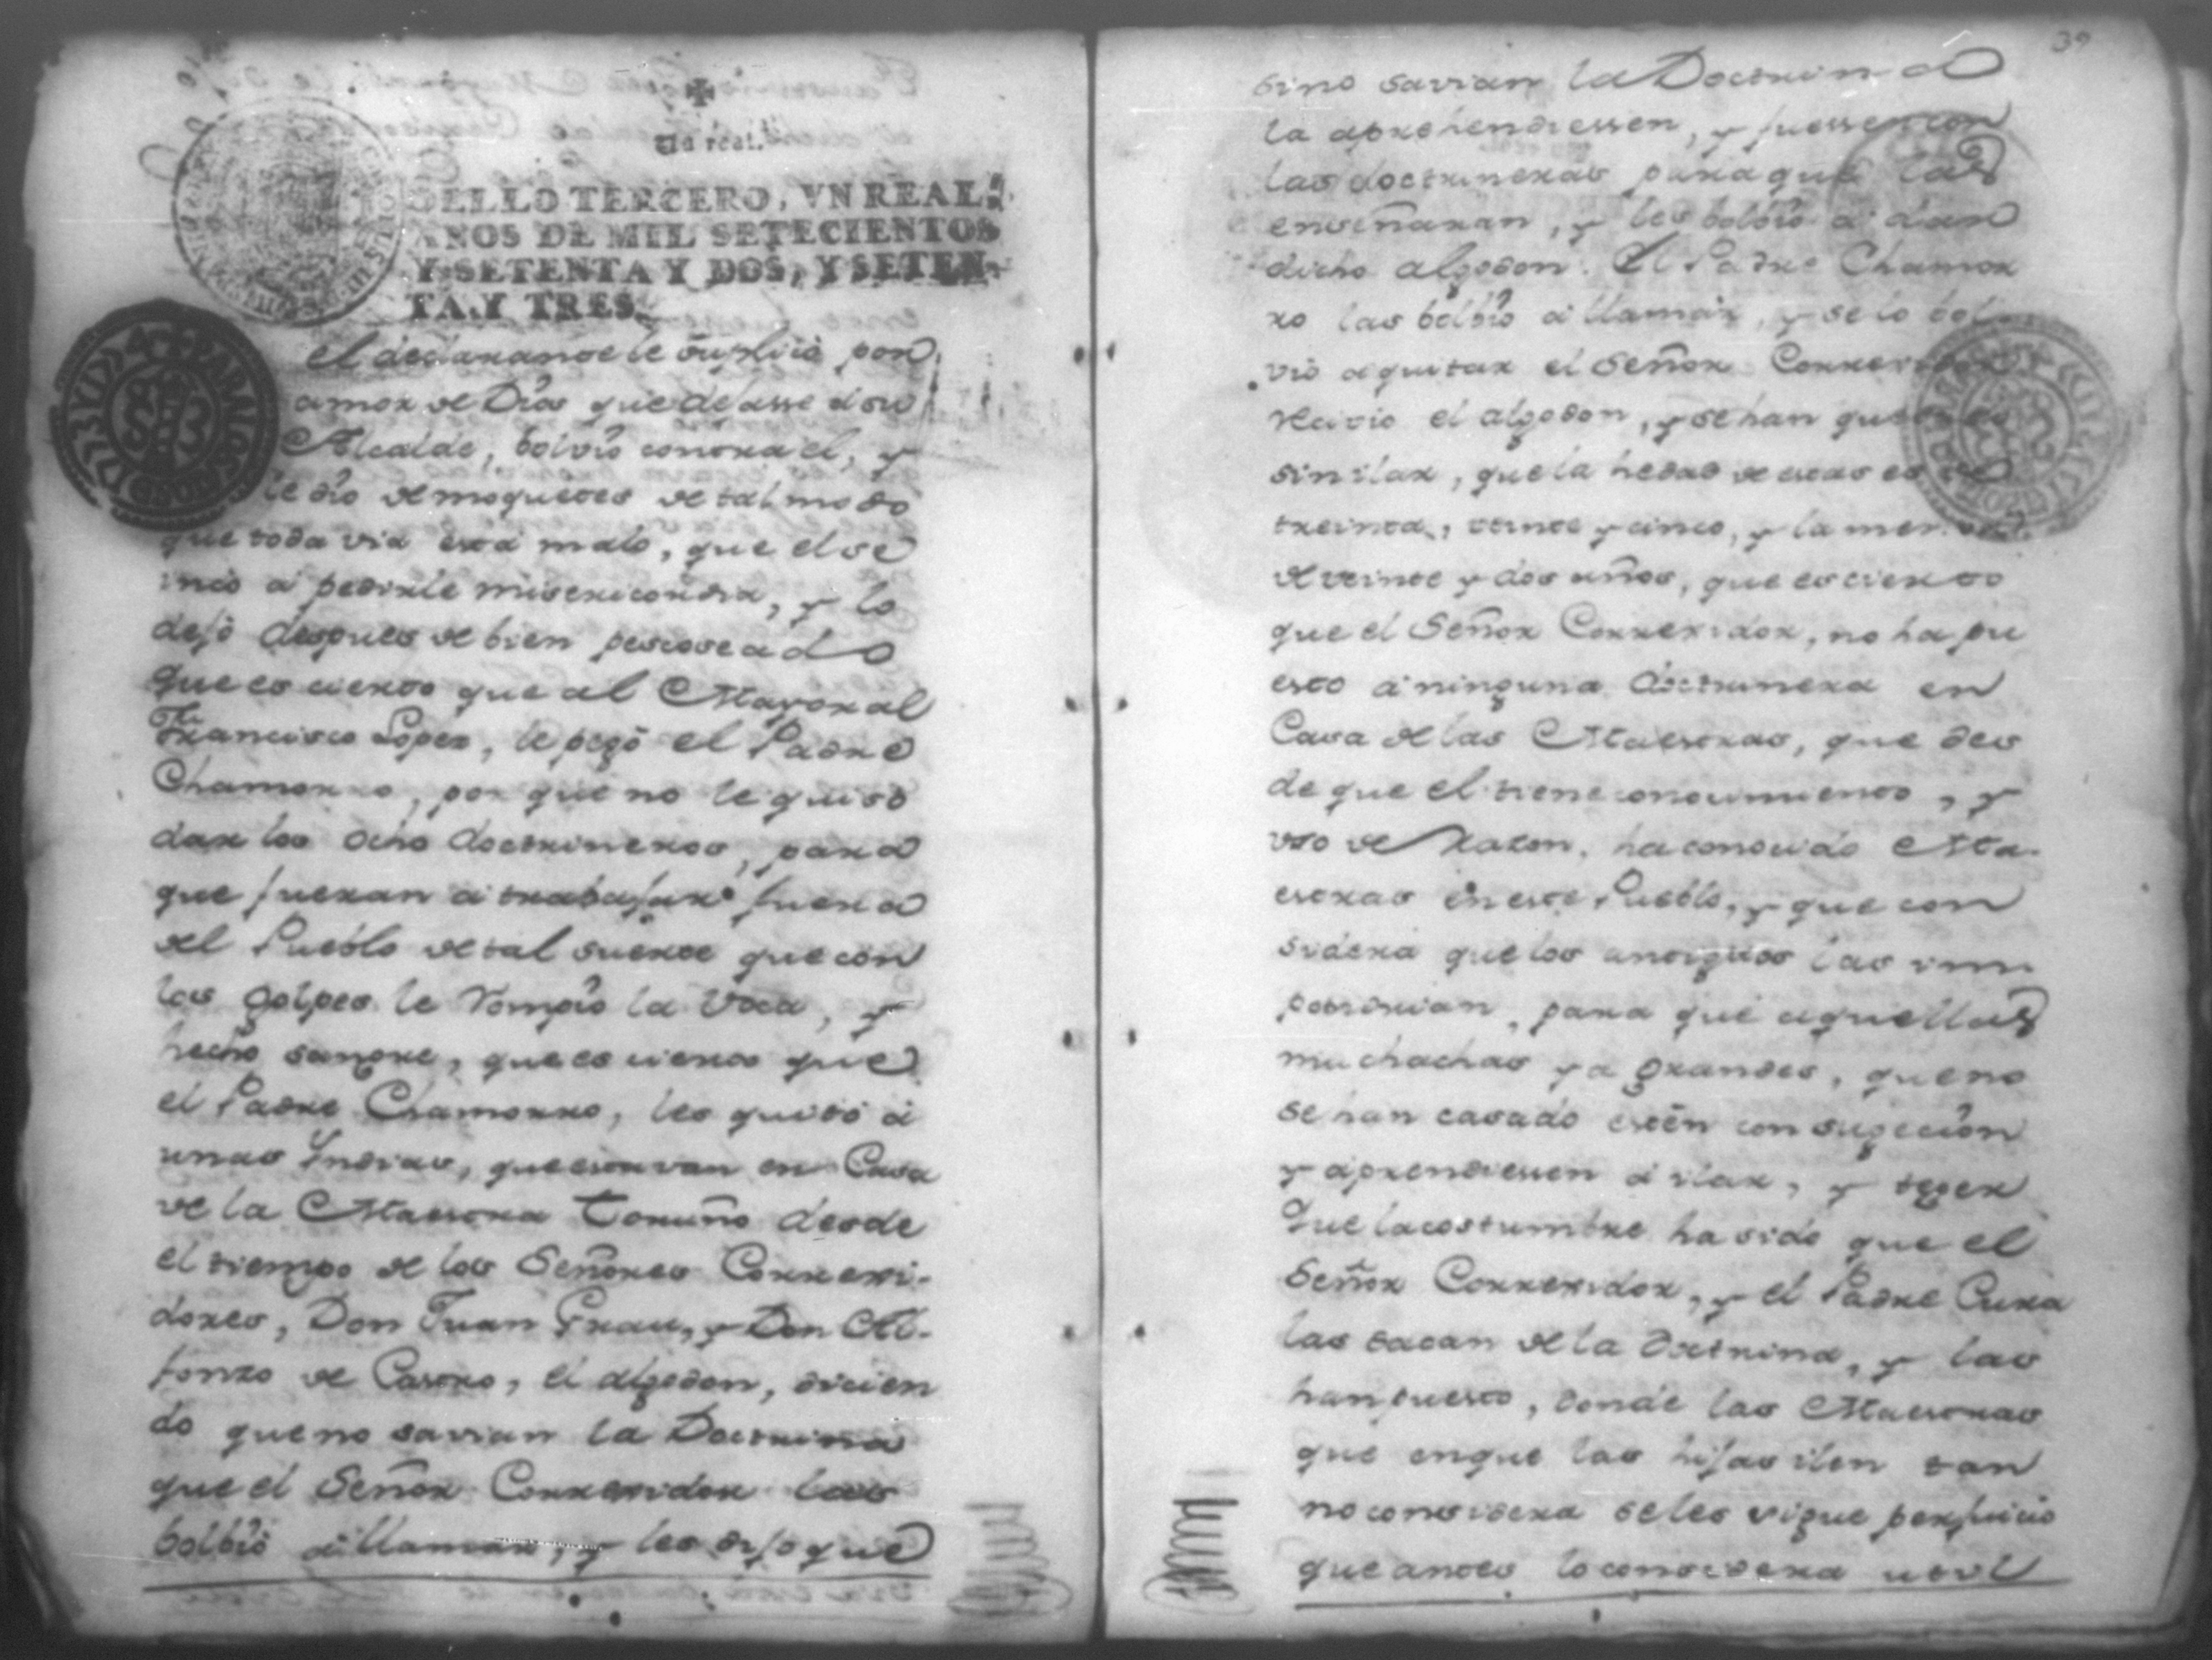 Vn real.
SELLO TERCERO, VN REAL,
AÑOS DE MIL SETECIENTOS
Y SETENTA Y DOS, Y SETEN-
TA Y TRES.
el declarante le suplicó por
amor de Dios que dejasse a su
Alcalde, bolvio contra el, y
le dio de moquetes de tal modo
que toda via está malo, que el se
inco a pedirle misericordia, y lo
dejò despues de bien pescoseado
que es cierto que al Mayoral
Francisco Lopez, le pegò el Padre
Chamorro, por que no le quiso
dar los ocho doctrineros, para
que fueran a trabajar fuera
del Pueblo de tal suerte que con
los golpes le rompio la voca, y
hecho sangre, que es cierto que
el Padre Chamorro, les quitó á
unas Indias, que estavan en Casa
de la Maestra Toruño desde
el tiempo de los Señores Corregi-
dores, Don Juan Grau, y Don Al-
fonzo de Castro, el algodon, dicien
do que no savian la Doctrina
que el Señor Corregidor las
bolbió a llamar, y les dijo que
39
sino savian la Doctrina
la aprehendiessen, y fuessen con
las doctrineras para que las
enseñaran, y les bolbio a dar
dicho algodon. El Padre Chamor
ro las bolbio a llamar, y se lo bol
vió a quitar el Señor Corregidor
recivio el algodon, y se han quedado
sin ilar, que la hedad de estas es de
treinta, veinte y cinco, y la menor
de veinte y dos años, que es cierto
que el Señor Corregidor, no ha pu
esto á ninguna doctrinera en
Casa de las Maestras, que des
de que el tiene conocimiento, y
uso de razon, ha conocido Ma-
estras en este Pueblo, y que con
sidera que los antiguos las im
pondrian, para que aquellas
muchachas ya grandes, que no
se han casado estén con sugecion
y aprendiessen a ilar, y teger
Que la costumbre ha sido que el
Señor Corregidor, y el Padre Cura
las sacan de la doctrina, y las
han puesto, donde las Maestras
que en que las hijas ilen tan
no considera se les sigue perjuicio
que antes lo considera util